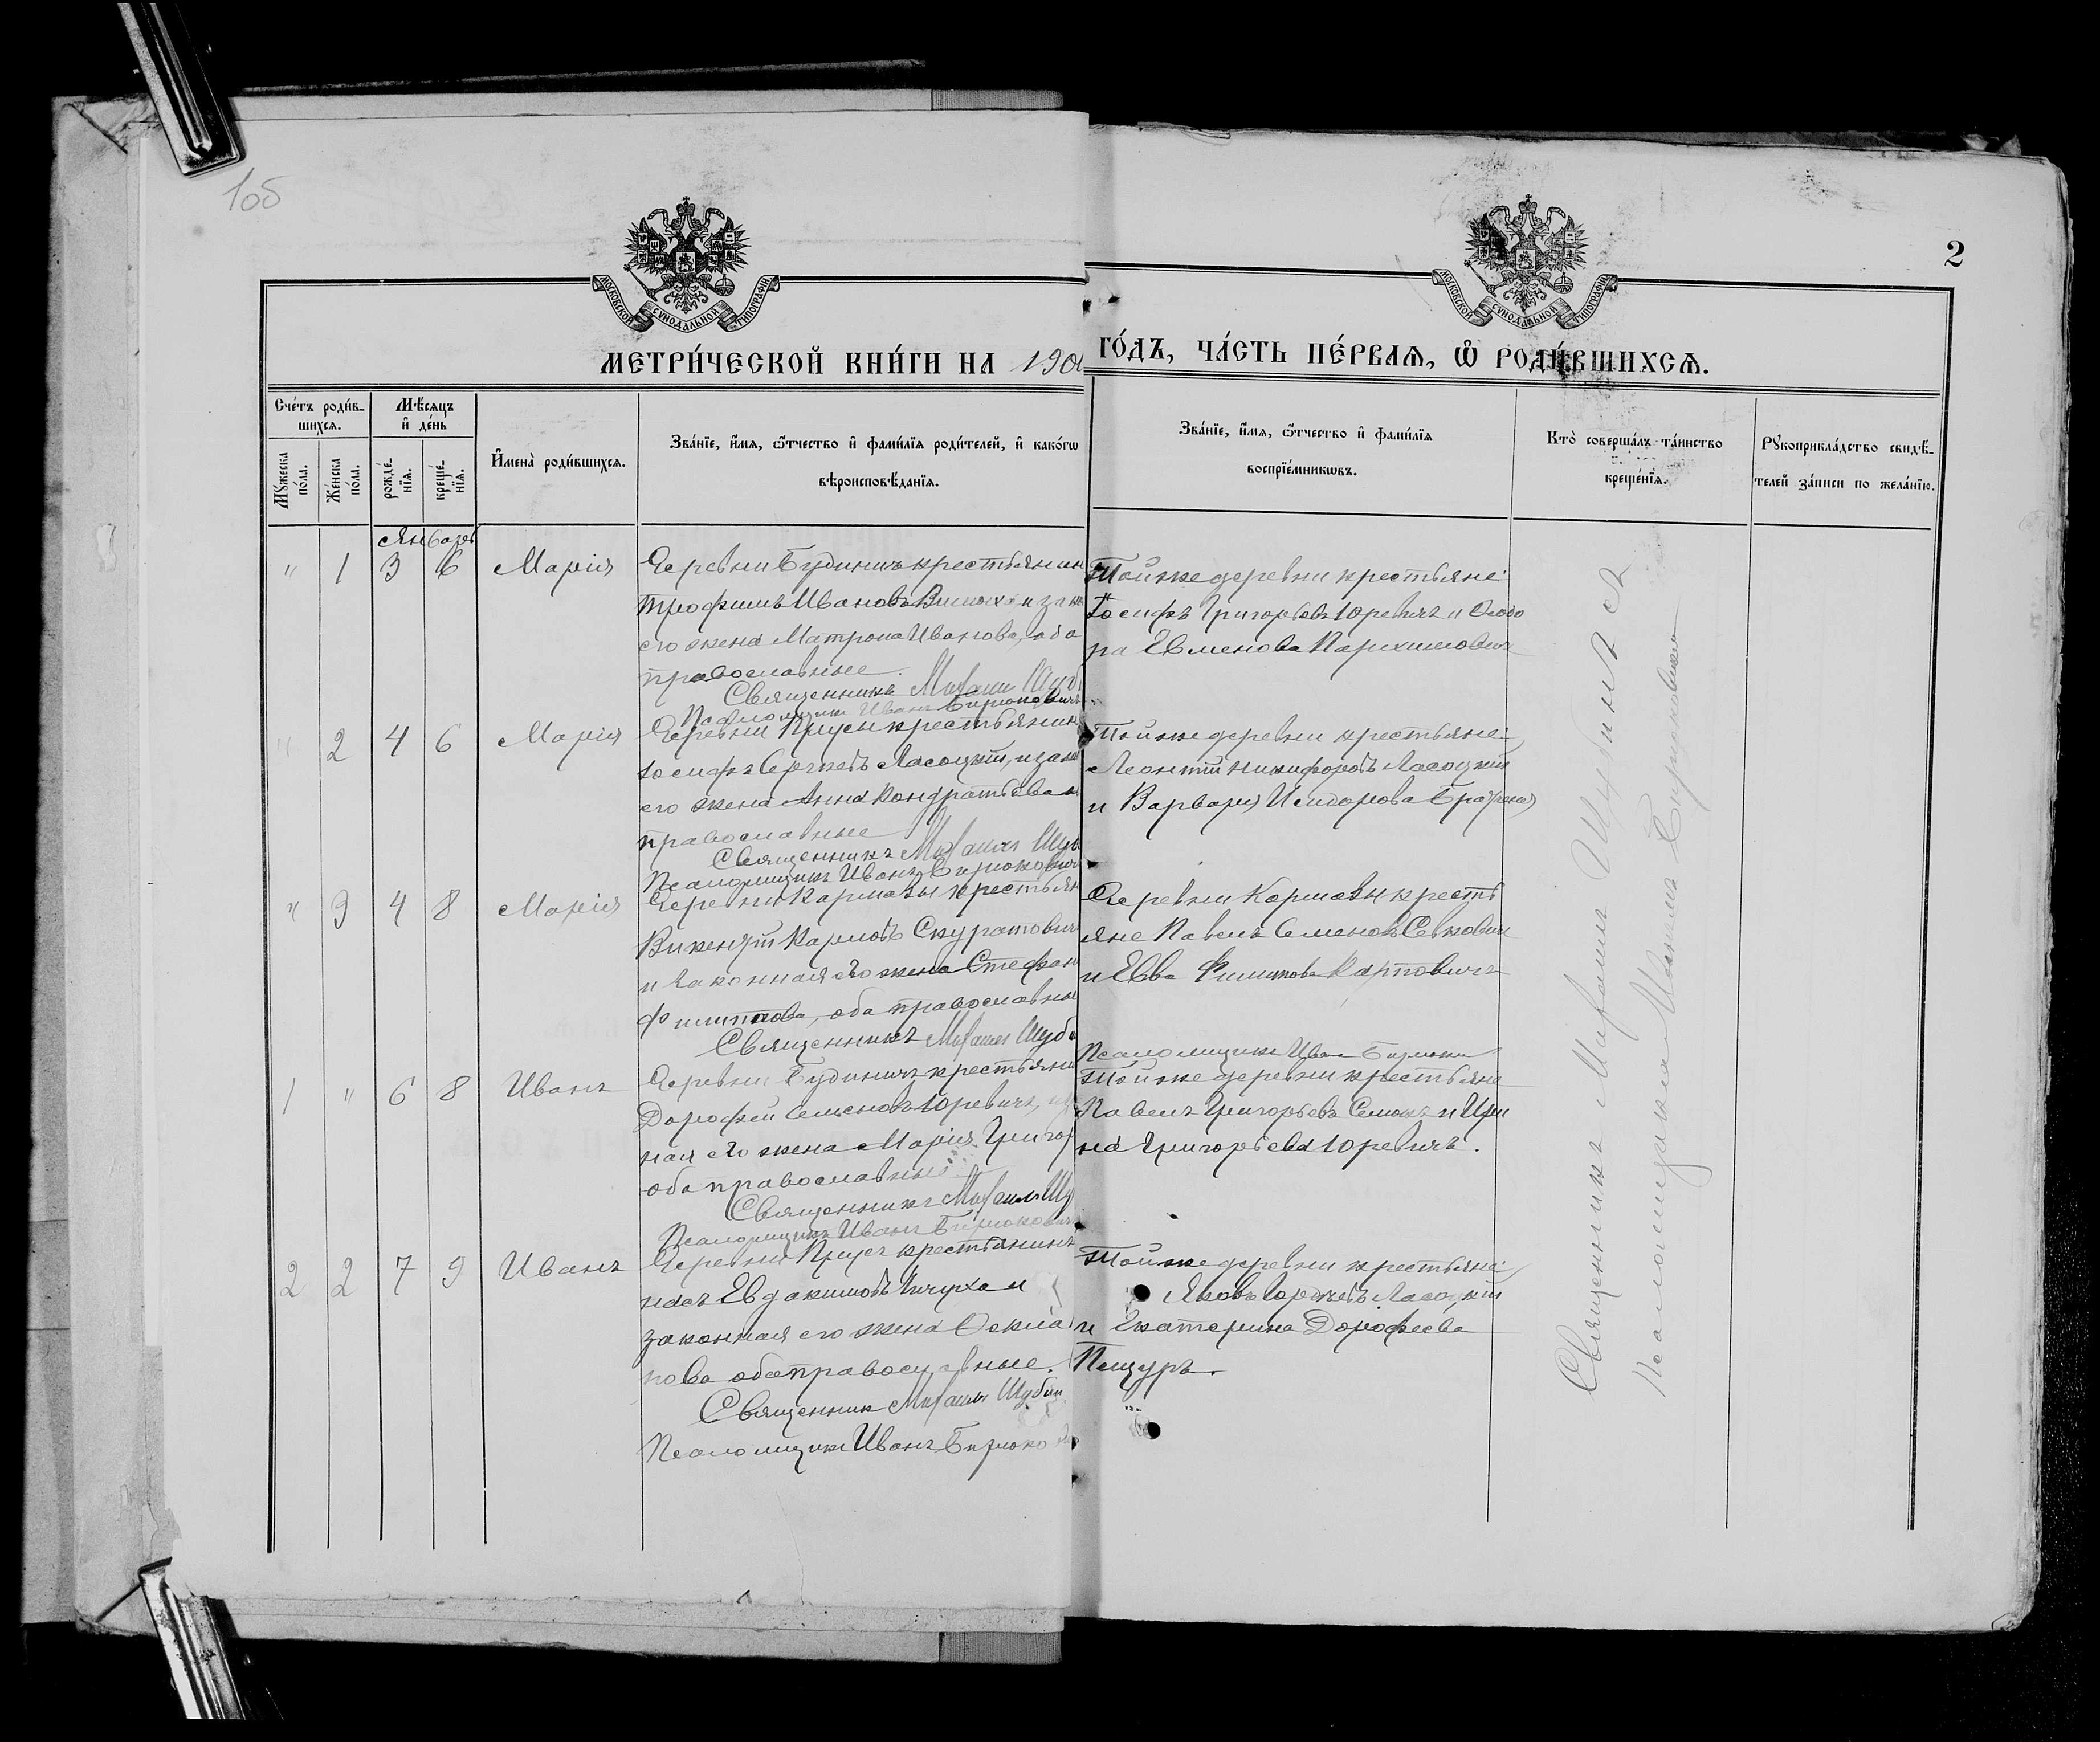 106
2
МОСКОВСКОЙ СѴНОДАЛЬНОЙ ТИПОГРАФІИ
МОСКОВСКОЙ СѴНОДАЛЬНОЙ ТИПОГРАФІИ
МЕТРИ́ЧЕСКОЙ КНИ́ГИ НА 190
ГО́ДЪ, ЧА́СТЬ ПЕ́РВАѦ, Ѽ РОДИ́ВШИХСѦ.
Сче́тъ роди́в-
шихсѧ.
Мꙋ́жеска
по́ла.
Же́нска
по́ла.
Мѣ́сяцъ
и҆ де́нь
рожде́-
нїѧ.
креще́-
нїѧ.
И҆мена̀ роди́вшихсѧ.
Зва́нїе, и҆́мѧ, ѻ҆́тчество и҆ фами́лїѧ роди́телей, и҆ како́гѡ
вѣроисповѣ́данїѧ.
Зва́нїе, и҆́мѧ, ѻ҆́тчество и҆ фами́лїѧ
воспрїе́мникѡвъ.
Кто̀ соверша́лъ та́инство
креще́нїѧ.
Рꙋкоприкла́дство свидѣ́-
телей за́писи по жела́нїю.
Январь
" 1 3 6 Марія
Деревни Будичъ крестьянин
Трофимъ Ивановъ и зак
его жена Матрона Иванова, оба
православные.
Священникъ Михаилъ Шуб
Псаломщикъ Иванъ Бирюковичъ
Той же деревни крестьяне:
Іосифъ Григорьевъ Юревичъ и Ѳеодо
ра Евменова Пархимовичъ
" 2 4 6 Марія
Деревни Прусы крестьянин
Іосифъ Сергеевъ Ласоцкій, и зак
его жена Анна Кондратьева
православные
Священникъ Михаилъ Шуб
Псаломщикъ Иванъ Бирюкович
Той же деревни крестьяне:
Леонтій Никифоровъ Ласоцкій
и Варвара Исидорова
" 3 4 8 Марія
Деревни Кармазы крестьян
Викентій Карловъ Скуратович
и законная его жена Стефан
Филиппова, оба православны
Священникъ Михаилъ Шуби
Деревни Кормазы кресть
яне Павелъ Семеновъ Севкович
и Евва Филипова Карповичъ
Псаломщикъ Иван Бирюкович
1 " 6 8 Иванъ
Деревни Будичъ крестьянин
Дорофей Семеновъ Юревичъ, и з
ная его жена Марія Григор
оба православные
Священникъ Михаилъ Шу
Псаломщикъ Иванъ Бирюкович
Той же деревни крестьяне
Павелъ Григорьевъ Семокъ и Ири
на Григорьева Юревичъ.
2 2 7 9 Иванъ
Деревни Прусъ крестьянинъ
насъ Евдакимовъ и
законная его жена Ѳекла
пова оба православные.
Священник Михаилъ Шубин
Псаломщикъ Иванъ Бирюко
Той же деревни крестьяне:
Яковъ Ласоцкій
и Екатерина Дорофеева
Пещуръ.
Священникъ Михаилъ Шубинъ
Псаломщикъ Иванъ Бирюковичъ